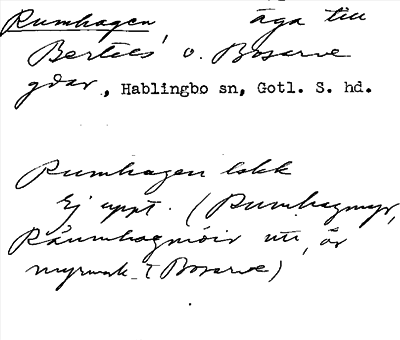 Rumhagen, äga till
Bertels o. Bosarve
gdar, Hablingbo sn, Gotl. S. hd.
Rumhagen lokk
Ej uppt. (Rumhagmyr,
Räumhagmöir ute, är
myrmark t Bosarve)